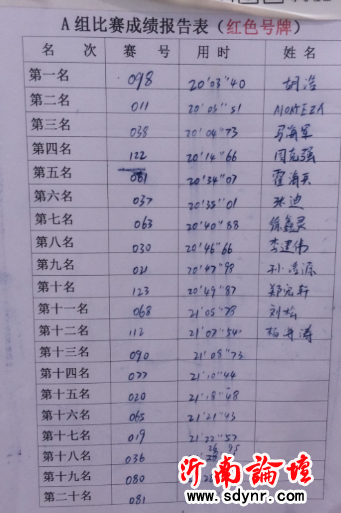 A组比赛成绩报告表(红色号牌)
名 次 赛 号 用 时 姓 名
第一名 098 20'03"40 胡浩
第二名 011 20'03"51 MORTEZA
第三名 038 20'04"73 马海军
第四名 122 20'14"66
第五名 081 20'34"07
第六名 037 20'35"01 林迪
第七名 063 20'40"88 徐鑫灵
第八名 030 20'46"66 李建伟
第九名 021 20'47"98 孙浩源
第十名 123 20'49"87 郑宏轩
第十一名 068 21'05"78 刘松
第十二名 112 21'07"54 杨井涛
第十三名 090 21'08"73
第十四名 077 21'10"44
第十五名 020 21'18"48
第十六名 065 21'21"43
第十七名 019 21'22"57
第十八名 036
第十九名 080
第二十名 081
沂南論壇
www.sdynr.com